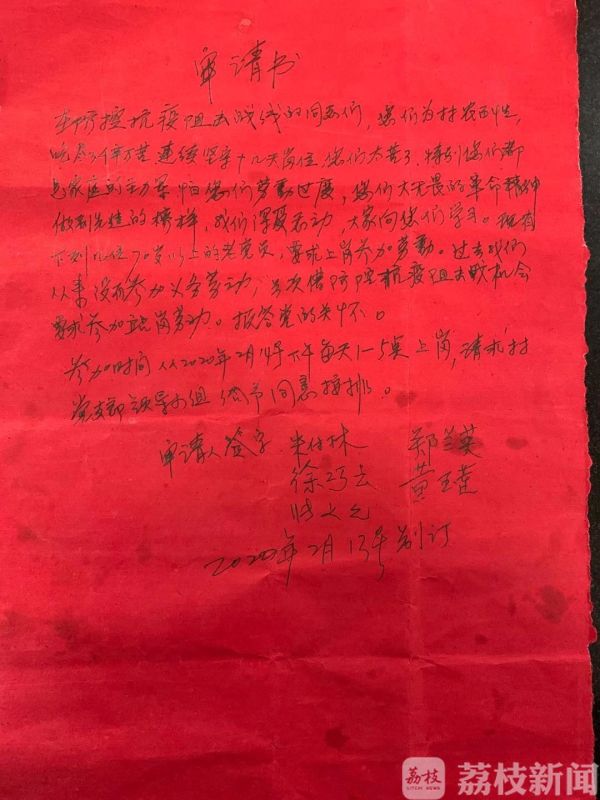 申请书
在防控抗疫阻击战线的同志们，您们为村农百姓，
吃尽了千辛万苦 连续坚守十几天岗位 您们太苦了，特别您们都
是家庭的主力军 怕您们劳动过度，您们大无畏的革命精神
做到先进的榜样，我们深受感动，大家向您们学习。现有
下列几位70岁以上的老党员，要求上岗参加劳动。过去我们
从来没有参加义务劳动，这次借防控抗疫阻击战机会
要求参加站岗劳动。报答党的关怀。
参加时间从2020年2月14号下午每天1-5奌上岗，请求村
党支部领导小组 给予同意按排。
申请人签字 朱仕林 郑兰英
徐巧云 黄玉莲
2020年2月13号 制订
荔枝
LITCHI NEWS
荔枝新闻